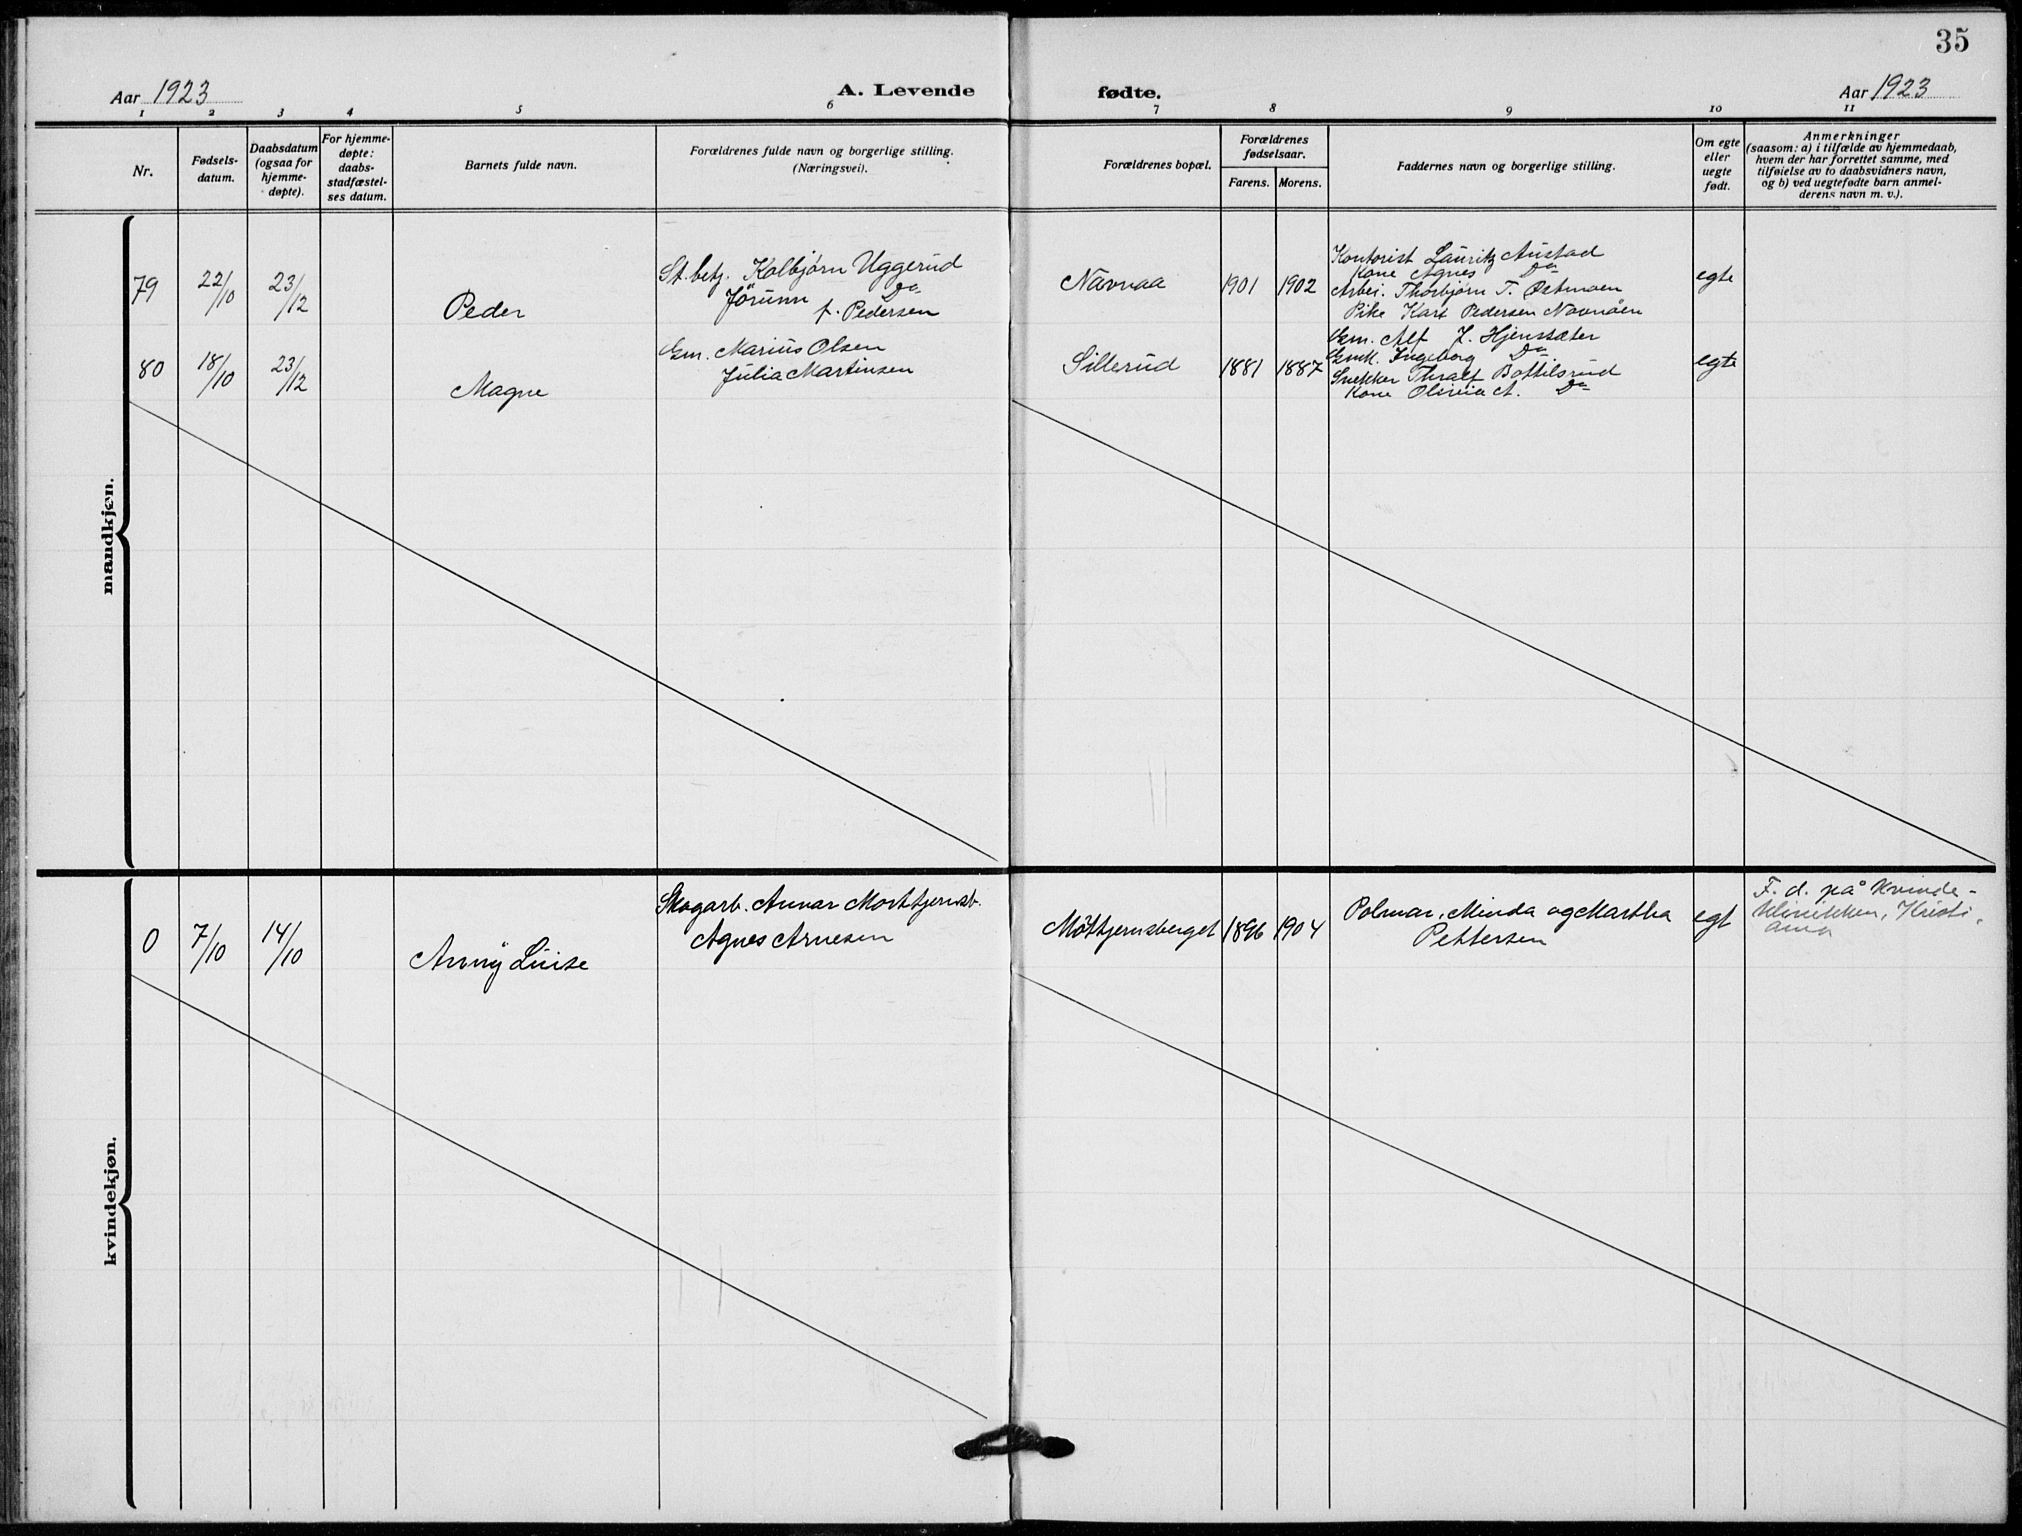 35
Aar 1923
A. Levende
fødte.
Aar 1923
1 2 3 4 5 6 7 8 9 10 11
Nr.
Fødsels-
datum.
Daabsdatum
(ogsaa for
hjemme-
døpte).
For hjemme-
døpte:
daabs-
stadfæstel-
ses datum.
Barnets fulde navn.
Forældrenes fulde navn og borgerlige stilling.
(Næringsvei).
Forældrenes bopæl.
Forældrenes
fødselsaar.
Farens. Morens.
Faddernes navn og borgerlige stilling.
Om egte
eller
uegte
født.
Anmerkninger
(saasom: a) i tilfælde av hjemmedaab,
hvem der har forrettet samme, med
tilføielse av to daabsvidners navn,
og b) ved uegtefødte barn anmel-
derens navn m. v.).
mandkjøn.
79
22/10
23/12
Peder
St. betj. Kolbjørn Uggerud
Jørunn Do
f. Pedersen
Navnaa
1901
1902
Kontorist Lauritz Austad
Kone Agnes Do
Arbei. Thorbjørn T. Østmoen
Pike Kari Pedersen Navnåen
egte
80
18/10
23/12
Magne
Gm. Marius Olsen
Julia Martinsen
Sillerud
1881
1887
Gm. Alf J. Hjenssæter
Gmk. Ingeborg Do
Snekker Thralf Bottilsrud
Kone Olivia A. Do
egte
kvindekjøn.
0
7/10
14/10
Anny Luise
Skogarb. Annar Morttjernsb.
Agnes Arnesen
Møttjernsberget
1896
1904
Polmar, Minda og Martha
Pettersen
egt
F. d. på Kvinde-
klinikken, Kristi-
ania